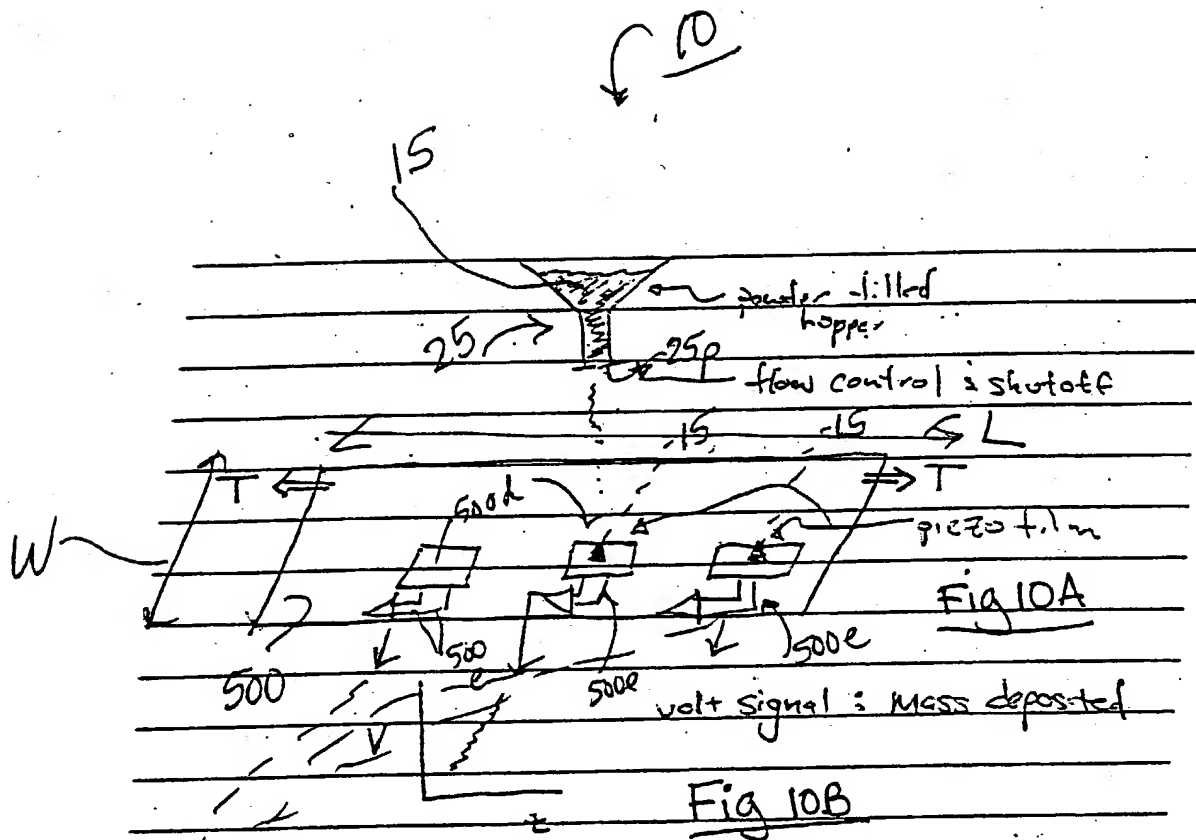 10
15
powder-filled
hopper
25
25p
flow control : shutoff
L
15
15
T
T
500d
piezo film
W
Fig 10A
500
500e
500
e
500e
volt signal : Mass deposited
V
t
Fig 10B